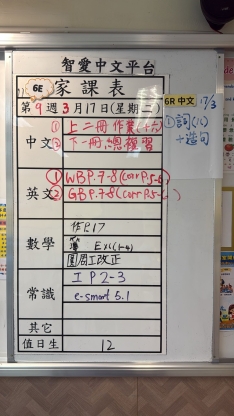 智愛中文平台
6E 家課表
第9週3月17日(星期二)
6R 中文 17/3
① 詞(16)
+造句
中文
① 上二冊作業(十六)
② 下一冊總複習
英文
① WB P.7-8 (corr P.5-6)
② GB P.7-8 (corr P.5-6)
數學
作P.17
簿 Ex1(1-4)
圓周工改正
常識
I P2-3
e-smart 5.1
其它
值日生 12